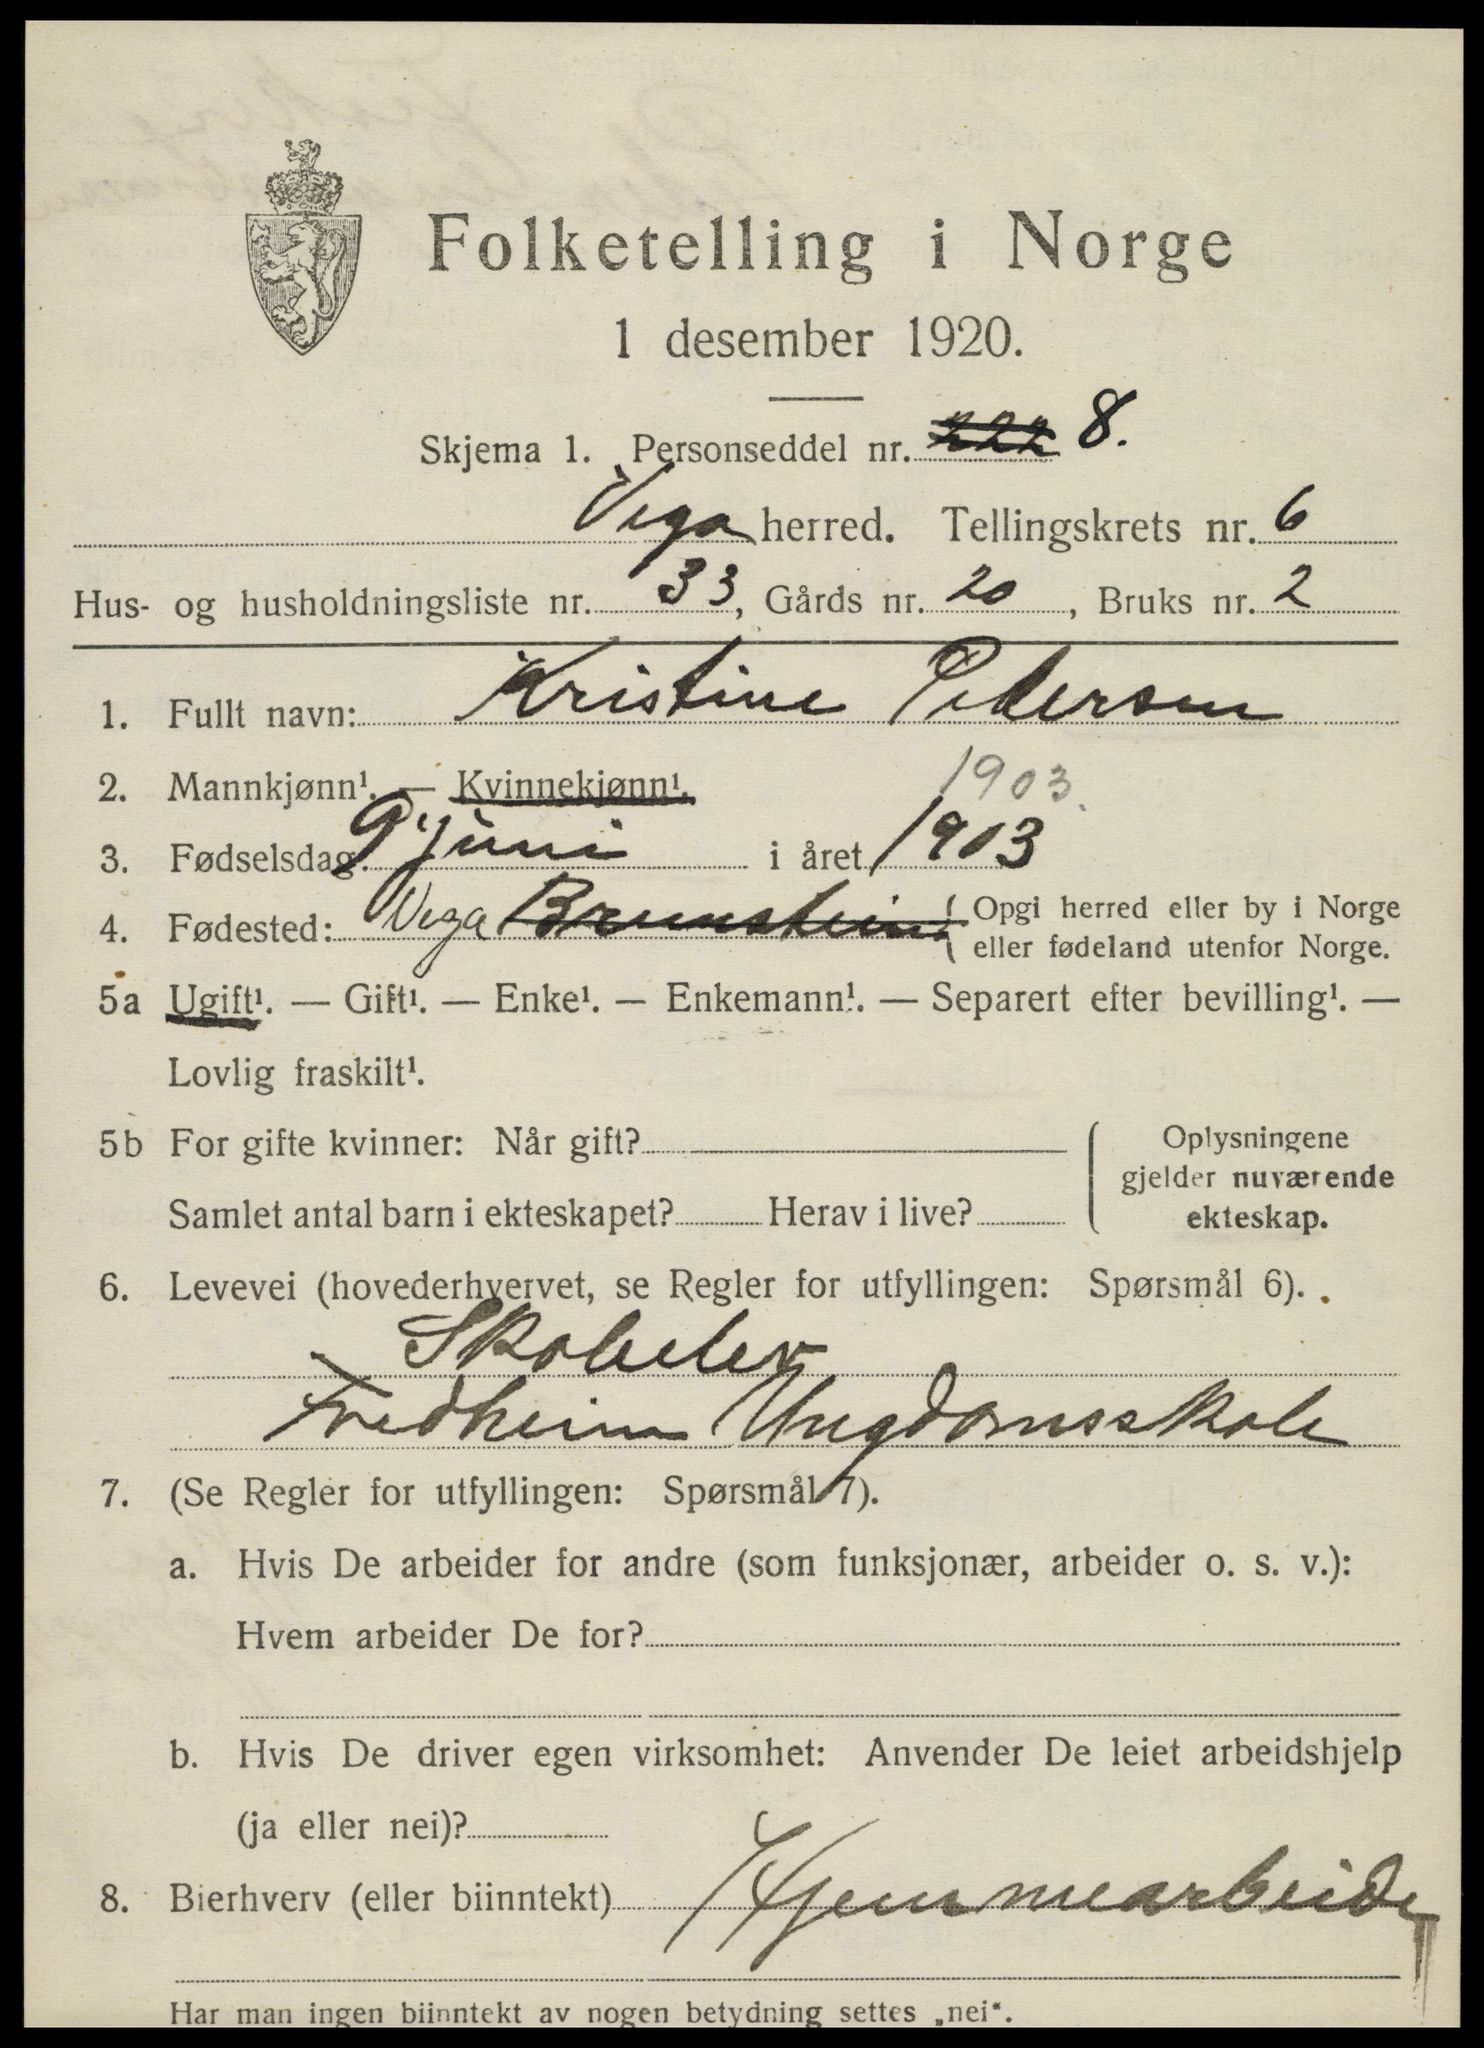 Folketelling i Norge
1 desember 1920.
Skjema 1. Personseddel nr. 222 8.
Vega herred. Tellingskrets nr. 6
Hus- og husholdningsliste nr. 33, Gårds nr. 20, Bruks nr. 2
1. Fullt navn: Kristine Pedersen
2. Mannkjønn¹. — Kvinnekjønn¹. 1903.
3. Fødselsdag: 9 juni i året 1903
4. Fødested: Vega { Opgi herred eller by i Norge
eller fødeland utenfor Norge.
5a Ugift¹. — Gift¹. — Enke¹. — Enkemann¹. — Separert efter bevilling¹. —
Lovlig fraskilt¹.
5b For gifte kvinner: Når gift?
Samlet antal barn i ekteskapet? Herav i live?
Oplysningene
gjelder nuværende
ekteskap.
6. Levevei (hovederhvervet, se Regler for utfyllingen: Spørsmål 6).
Skolelev
Fredheim Ungdomsskole
7. (Se Regler for utfyllingen: Spørsmål 7).
a. Hvis De arbeider for andre (som funksjonær, arbeider o. s. v.):
Hvem arbeider De for?
b. Hvis De driver egen virksomhet: Anvender De leiet arbeidshjelp
(ja eller nei)?
8. Bierhverv (eller biinntekt) Hjemmearbeide
Har man ingen biinntekt av nogen betydning settes „nei“.